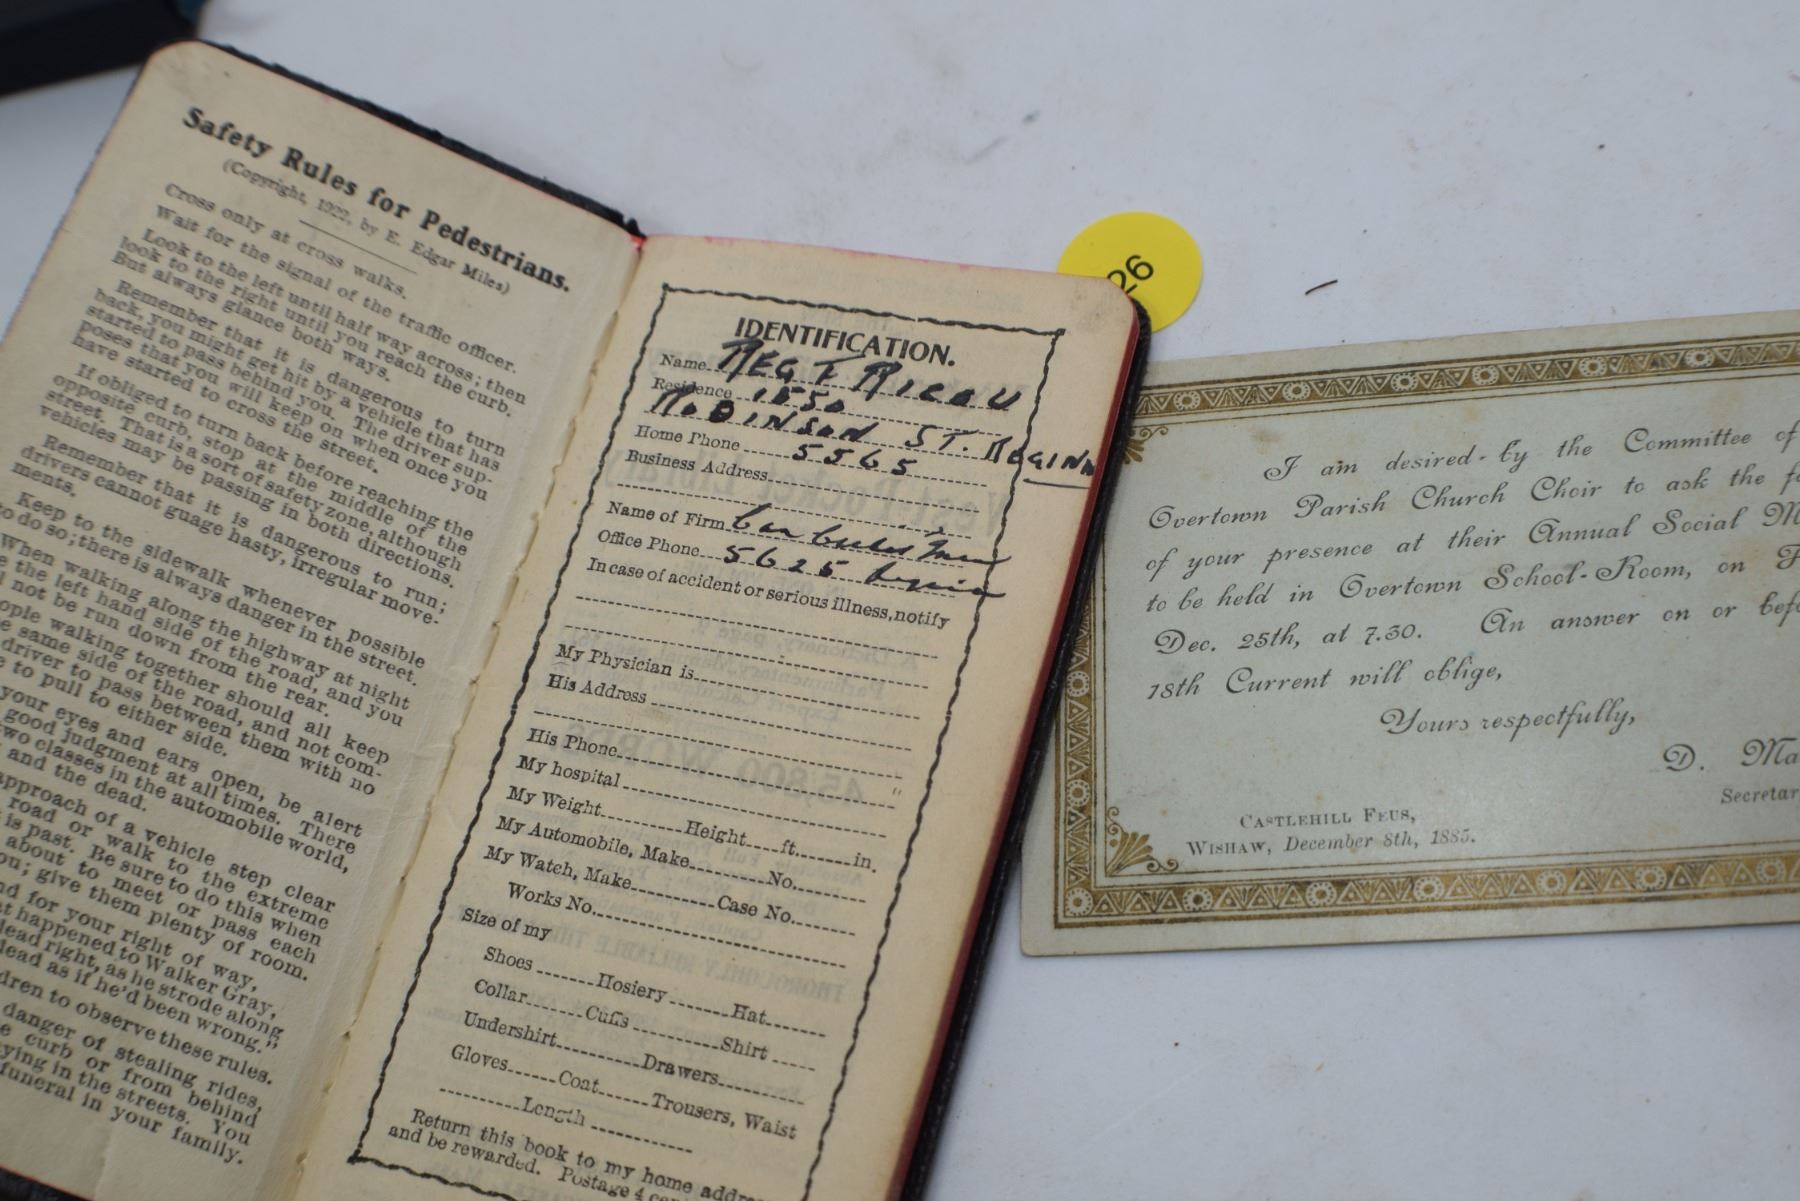 Safety Rules for Pedestrians.
(Copyright, 1922, by E. Edgar Miles)
Cross only at cross walks.
Wait for the signal of the traffic officer.
Look to the left until half way across; then
look to the right until you reach the curb.
But always glance both ways.
Remember that it is dangerous to turn
back, you might get hit by a vehicle that has
started to pass behind you. The driver sup-
poses that you will keep on when once you
have started to cross the street.
If obliged to turn back before reaching the
opposite curb, stop at the middle of the
street. That is a sort of safety zone, although
vehicles may be passing in both directions.
Remember that it is dangerous to run;
drivers cannot guage hasty, irregular move-
ments.
Keep to the sidewalk whenever possible
to do so; there is always danger in the street.
When walking along the highway at night
the left hand side of the road, and you
not be run down from the rear.
ople walking together should all keep
same side of the road, and not com-
driver to pass between them with no
to pull to either side.
your eyes and ears open, be alert
good judgment at all times. There
two classes in the automobile world,
and the dead.
approach of a vehicle step clear
road or walk to the extreme
is past. Be sure to do this when
about to meet or pass each
ou; give them plenty of room.
nd for your right of way,
at happened to Walker Gray,
dead right, as he strode along
dead as if he'd been wrong."
dren to observe these rules.
danger of stealing rides,
curb or from behind
ying in the streets. You
funeral in your family.
IDENTIFICATION.
Name REG T RICOU
Residence 1850
ROBINSON ST. REGINA
Home Phone 5565
Business Address
Name of Firm
Office Phone 5625 Regina
In case of accident or serious illness, notify
My Physician is
His Address
His Phone
My hospital "
My Weight Height ft. in.
My Automobile, Make No.
My Watch, Make Case No.
Works No.
Size of my
Shoes Hosiery Hat
Collar Cuffs Shirt
Undershirt Drawers
Gloves Coat Trousers, Waist
Length
Return this book to my home addre
and be rewarded. Postage 4 cen
26
I am desired by the Committee of
Overtown Parish Church Choir to ask the fa
of your presence at their Annual Social M
to be held in Overtown School-Room, on F
Dec. 25th, at 7.30. An answer on or befo
18th Current will oblige,
Yours respectfully,
D. Ma
Secretar
CASTLEHILL FEUS,
WISHAW, December 8th, 1885.